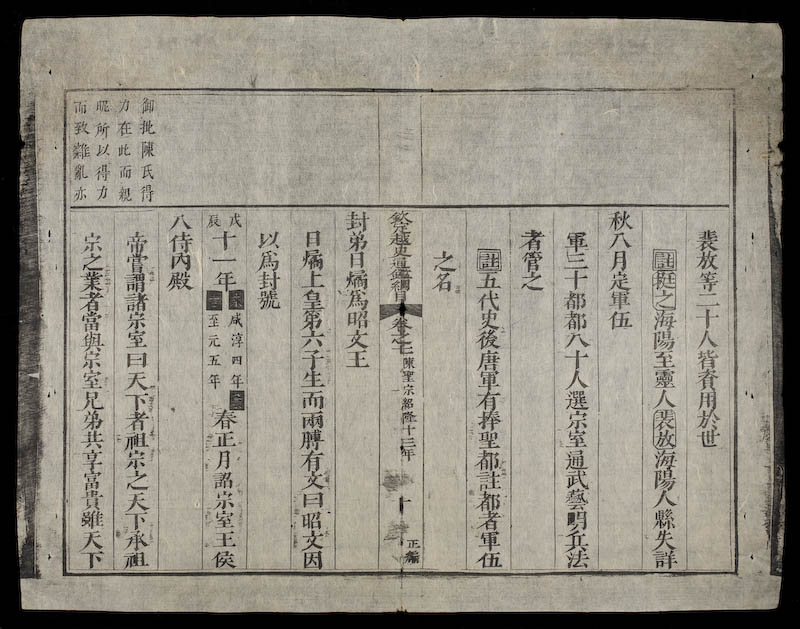 裴放等二十人皆資用於世
註挺之海陽至靈人裴放海陽人縣失詳
秋八月定軍伍
軍三十都都八十人選宗室通武藝明兵法
者管之
註五代史後唐軍有捧聖都註都者軍伍
之名
欽定越史通鑑綱目卷之七陳聖宗紹隆十三年 十 正編
封弟日燏爲昭文王
日燏上皇第六子生而兩膊有文曰昭文因
以爲封號
戊辰十一年宋咸淳四年元至元五年春正月詔宗室王侯
入侍內殿
帝嘗謂諸宗室曰天下者祖宗之天下承祖
宗之業者當與宗室兄弟共享富貴雖天下
御批陳氏得
力在此而親
昵所以得力
而致雜亂亦